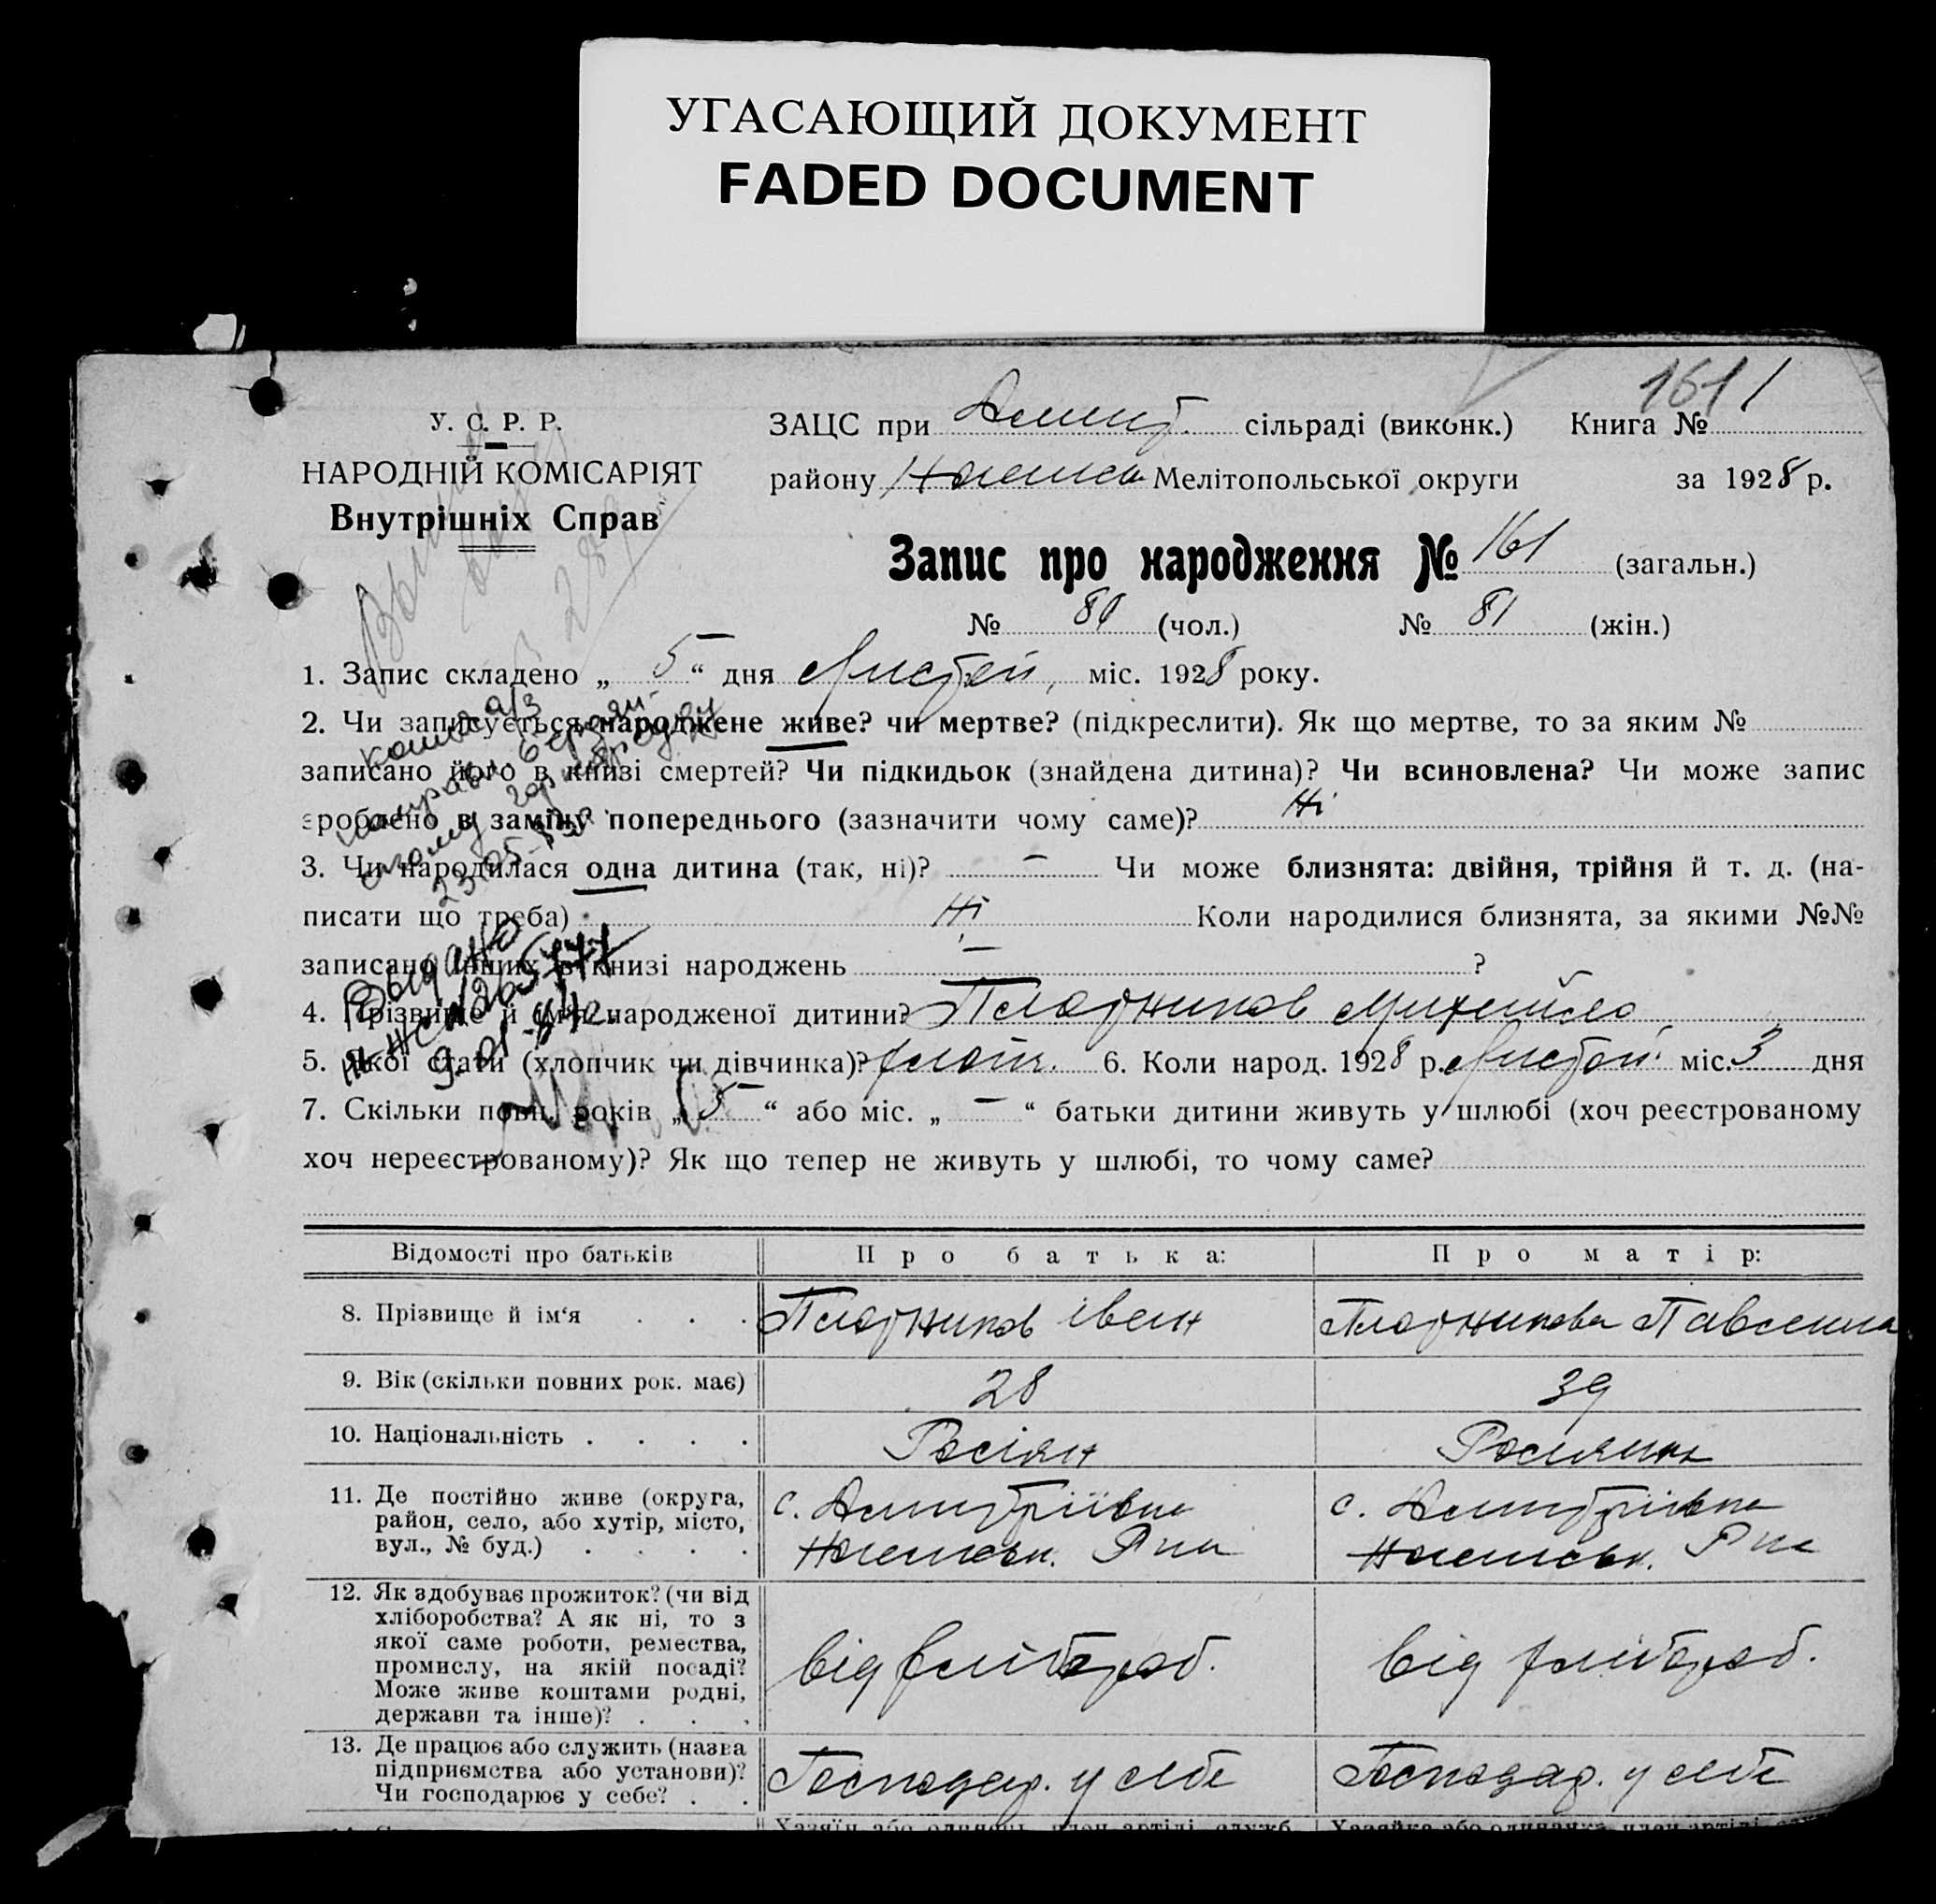 УГАСАЮЩИЙ ДОКУМЕНТ
FADED DOCUMENT
1611
У. С. Р. Р.
НАРОДНІЙ КОМІСАРІЯТ
Внутрішніх Справ
ЗАЦС при Дмит. сільраді (виконк.) Книга №
району Мелітопольської округи за 1928 р.
Запис про народження № 161 (загальн.)
№ 80 (чол.) № 81 (жін.)
1. Запис складено „ 5 “ дня міс. 1928 року.
2. Чи записується народжене живе? чи мертве? (підкреслити). Як що мертве, то за яким №
записано його в книзі смертей? Чи підкидьок (знайдена дитина)? Чи всиновлена? Чи може запис
зроблено в заміну попереднього (зазначити чому саме)? Ні
3. Чи народилася одна дитина (так, ні)? — Чи може близнята: двійня, трійня й т. д. (на-
писати що треба) Ні Коли народилися близнята, за якими №№
записано інших в книзі народжень — ?
4. Прізвище й ім'я народженої дитини? Плотников Михайло
5. Якої стати (хлопчик чи дівчинка)? хлопч. 6. Коли народ. 1928 р. міс. 3 дня
7. Скільки повн. років „ 5 “ або міс. „ — “ батьки дитини живуть у шлюбі (хоч реєстрованому
хоч нереєстрованому)? Як що тепер не живуть у шлюбі, то чому саме?
23.05-
Выдано
9.01-
Відомості про батьків Про батька: Про матір:
8. Прізвище й ім‘я . . . Плотников Іван Плотникова
9. Вік (скільки повних рок. має) 28 39
10. Національність . . . . Росіян Росиянка
11. Де постійно живе (округа, с. Дмитріївка с. Дмитріївка
район, село, або хутір, місто, Р на Р на
вул., № буд.) . . . .
12. Як здобуває прожиток? (чи від
хліборобства? А як ні, то з
якої саме роботи, ремества, від хлібороб. від хлібороб.
промислу, на якій посаді?
Може живе коштами родні,
держави та інше)? . . .
13. Де працює або служить (назва
підприємства або установи)? Господар. у себе Господар. у себе
Чи господарює у себе? . .